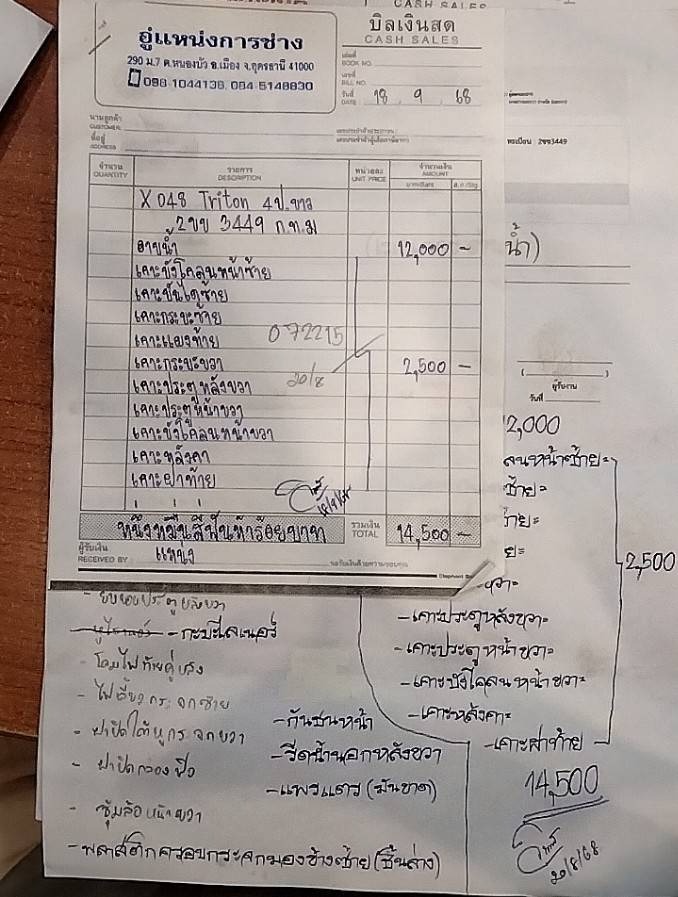 CASH SALES
อู่แหน่งการช่าง
290 ม.7 ต.หนองบัว อ.เมือง จ.อุดรธานี 41000
098-1044136, 084-5148830
บิลเงินสด
CASH SALES
เล่มที่
BOOK NO.
เลขที่
BILL NO.
วันที่
DATE 18 9 68
นามลูกค้า
CUSTOMER
ที่อยู่
ADDRESS
ทะเบียน : 2ขข3449
จำนวน รายการ หน่วยละ จำนวนเงิน
QUANTITY DESCRIPTION UNIT PRICE AMOUNT
X048 Triton 4ป. ขาว
2ขข 3449 ก.ท.ม
อาบน้ำ 12,000 -
น้ำ)
เคาะบังโคลนหน้าซ้าย
เคาะบันไดซ้าย
เคาะกระบะซ้าย
เคาะแมงซ้าย 072215
เคาะกระบะขวา 2,500 -
เคาะประตูหลังขวา 20/8
เคาะประตูหน้าขวา
เคาะบังโคลนหน้าขวา
เคาะหลังคา
เคาะฝาท้าย
18/9/68
หนึ่งหมื่นสี่พันห้าร้อยบาท รวมเงิน
TOTAL 14,500 -
ผู้รับเงิน
RECEIVED BY แหน่ง
ผู้รับงาน
วันที่
2,000
ลนหน้าซ้าย
ซ้าย
2,500
ขวา
- เคาะประตูหลังขวา
- เคาะประตูหน้าขวา
- เคาะบังโคลนหน้าขวา
- เคาะหลังคา
- เคาะฝาท้าย
14,500
20/8/68
- กระบะไลเนอร์
- โคมไฟท้ายคู่
- ฝาปิดกล่องฟิว
- ซุ้มล้อหน้าขวา
- พลาสติกครอบกระจกมองข้างซ้าย (ชิ้นล่าง)
- กันชนหน้า
- รีดน้ำนอกหลังขวา